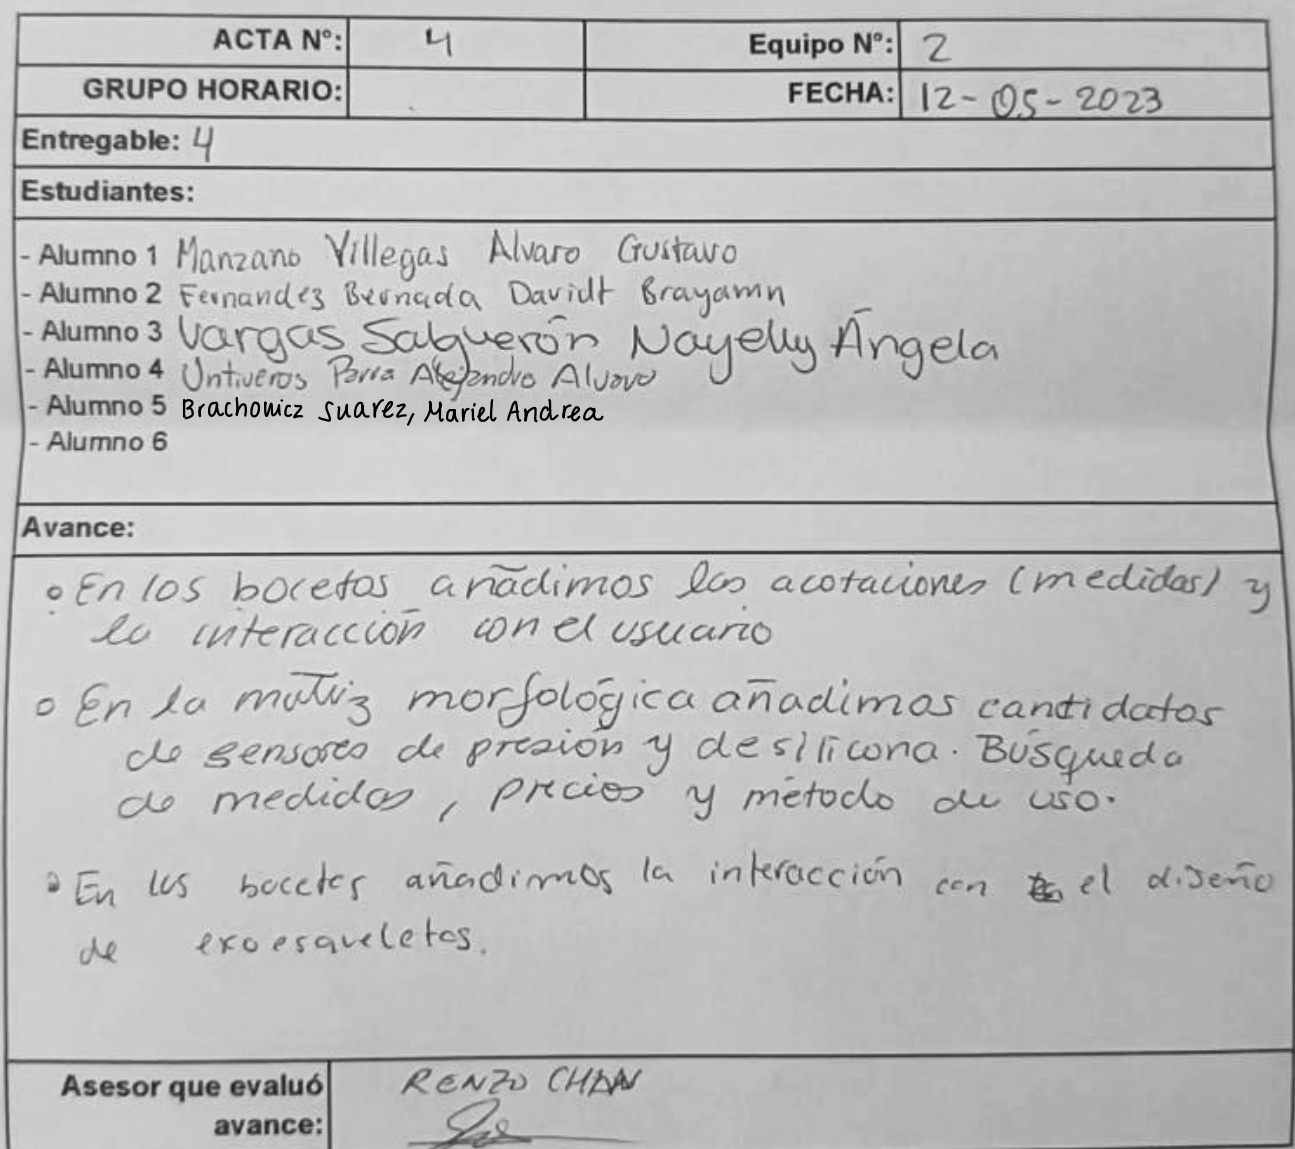 ACTA N°: 4 Equipo N°: 2
GRUPO HORARIO: FECHA: 12-05-2023
Entregable: 4
Estudiantes:
- Alumno 1 Manzano Villegas Alvaro Gustavo
- Alumno 2 Fernandez Bernada Davidt Brayamn
- Alumno 3 Vargas Salguerón Nayelly Ángela
- Alumno 4 Untiveros Parra Alejandro Alvaro
- Alumno 5 Brachowicz Suarez, Mariel Andrea
- Alumno 6
Avance:
° En los bocetos añadimos las acotaciones (medidas) y
la interacción con el usuario
° En la matriz morfológica añadimos candidatos
de sensores de presión y de silicona. Búsqueda
de medidas, precios y método de uso.
° En los bocetos añadimos la interacción con el diseño
de exoesqueletos.
Asesor que evaluó
avance:
RENZO CHAN